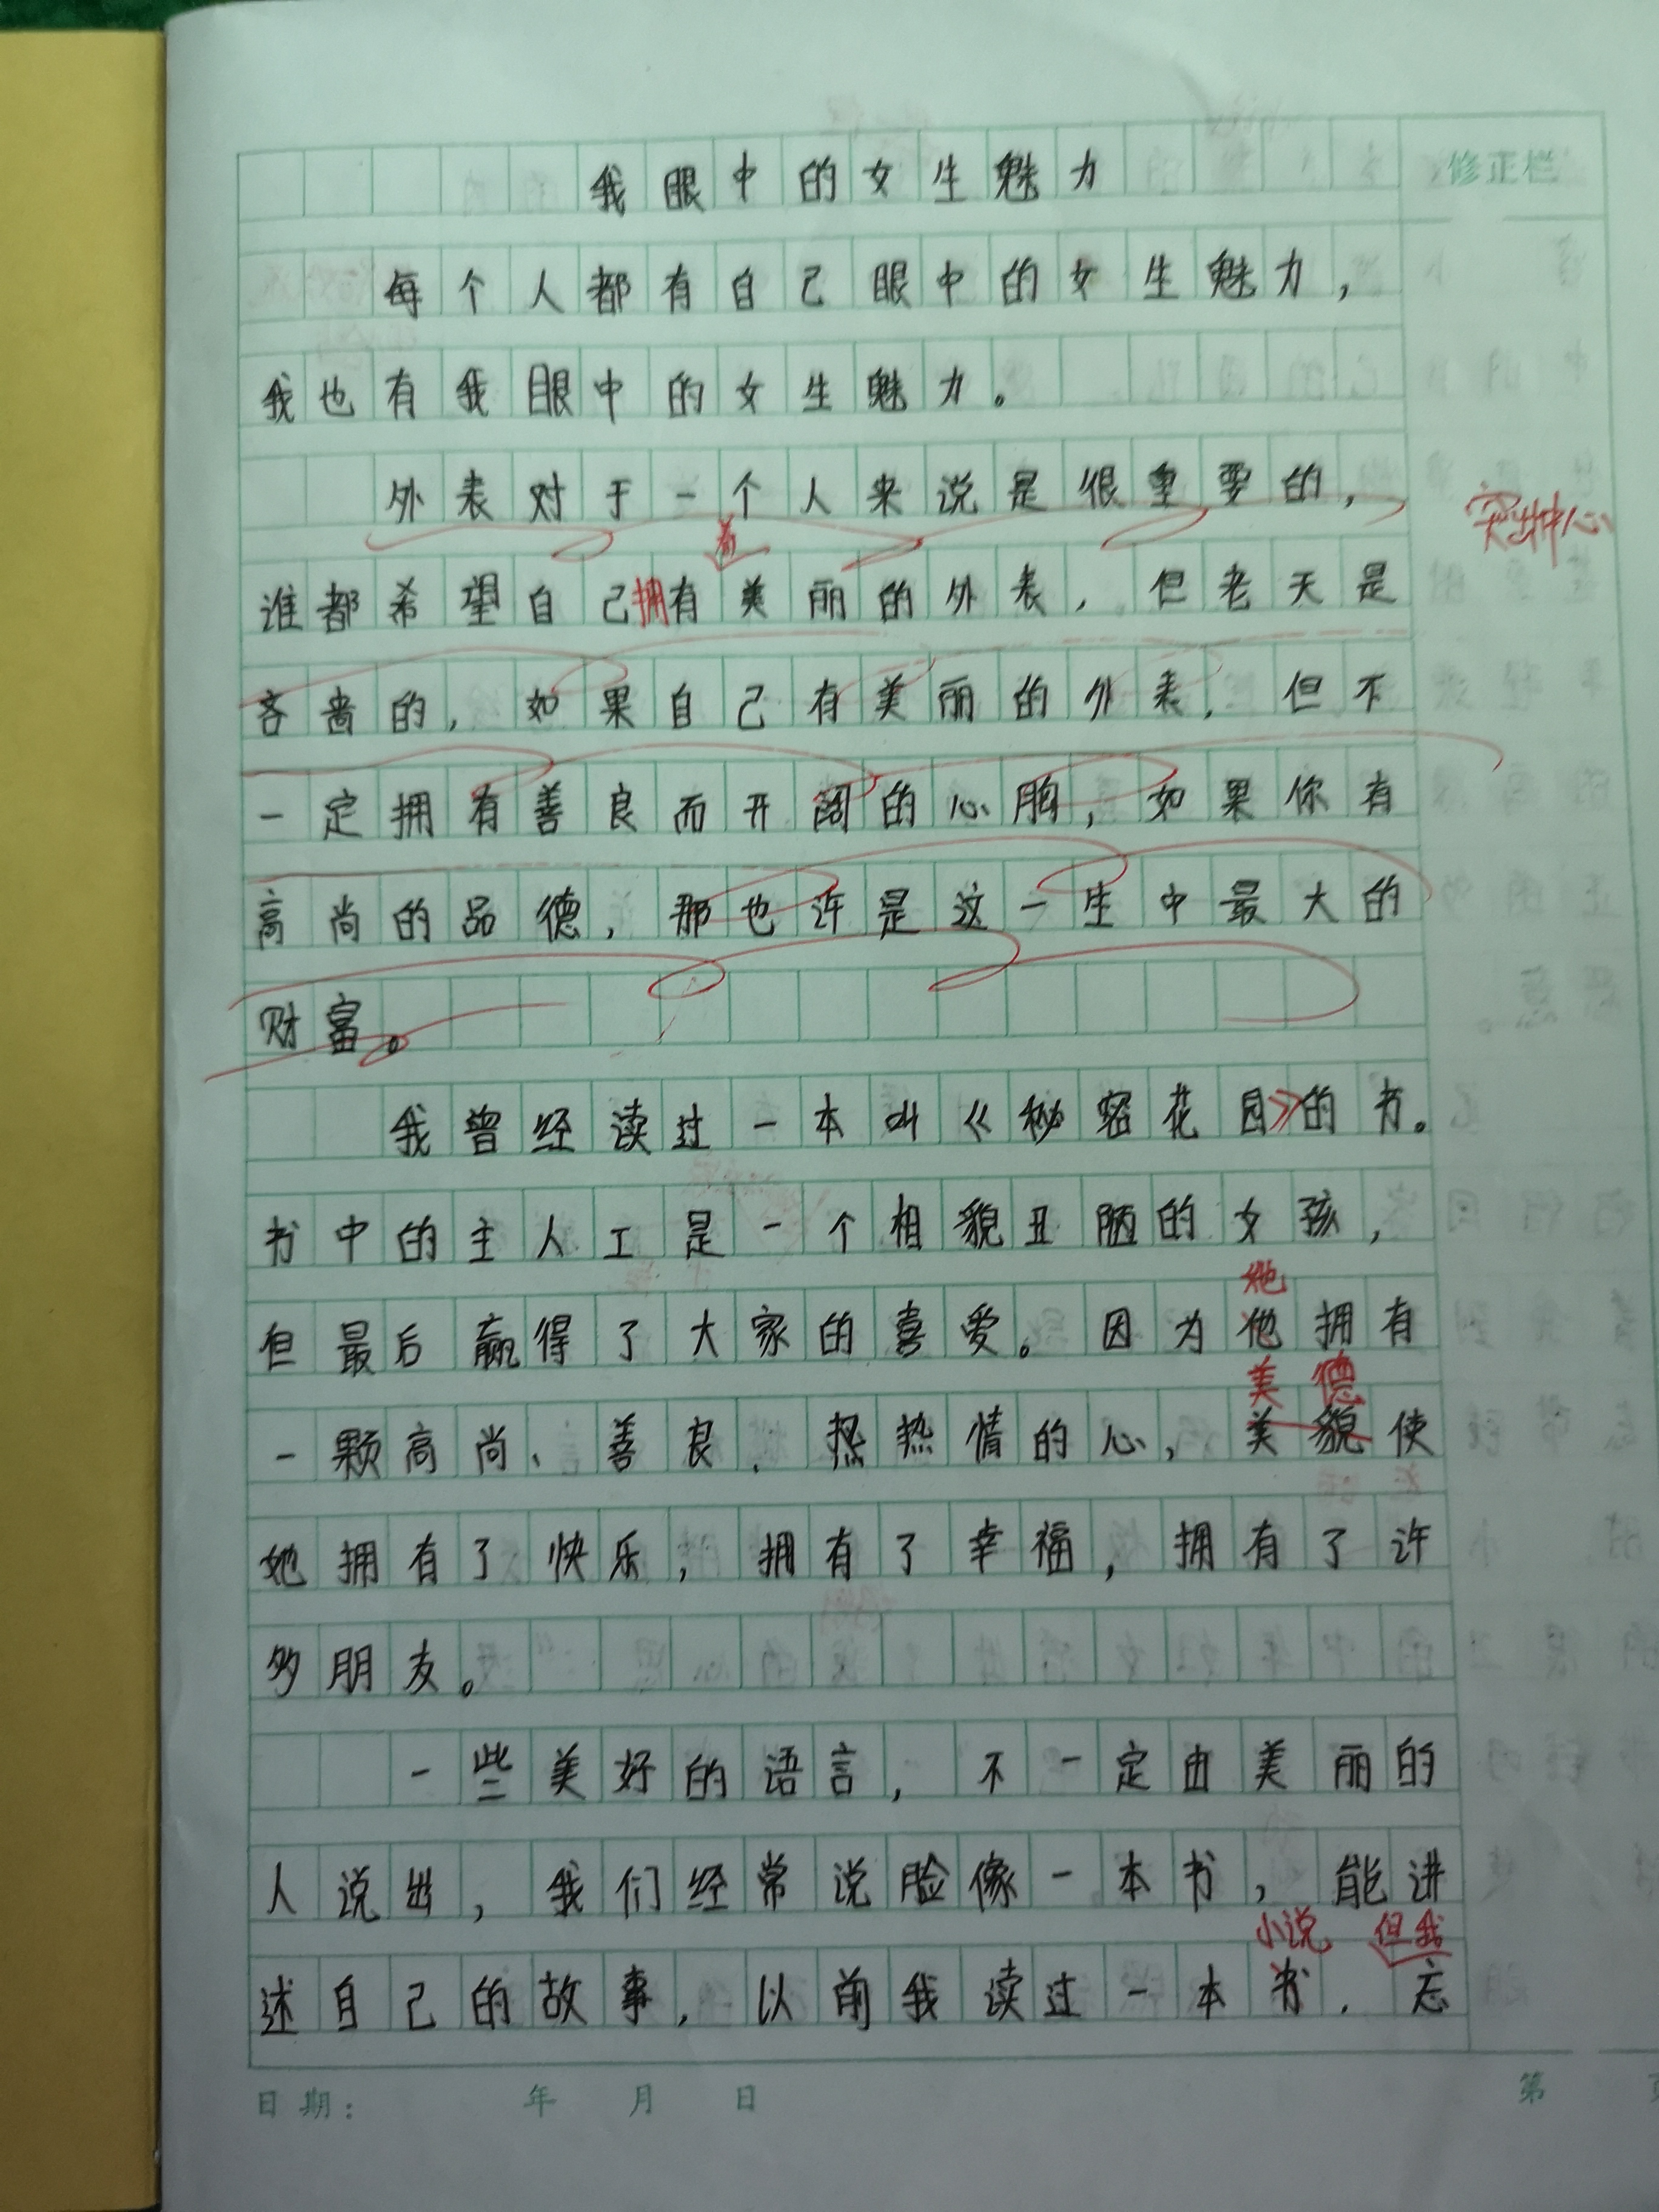 我眼中的女生魅力
修正栏
每个人都有自己眼中的女生魅力，
我也有我眼中的女生魅力。
外表对于一个人来说是很重要的，
突出中心
着
谁都希望自己拥有美丽的外表，但老天是
吝啬的，如果自己有美丽的外表，但不
一定拥有善良而开阔的心胸，如果你有
高尚的品德，那也许是这一生中最大的
财富。
我曾经读过一本叫《秘密花园》的书。
书中的主人工是一个相貌丑陋的女孩，
她
但最后赢得了大家的喜爱。因为他拥有
美德
一颗高尚、善良、热情的心，美貌使
她拥有了快乐，拥有了幸福，拥有了许
多朋友。
一些美好的语言，不一定由美丽的
人说出，我们经常说脸像一本书，能讲
小说 但我
述自己的故事，以前我读过一本书，忘
日期： 年 月 日
第